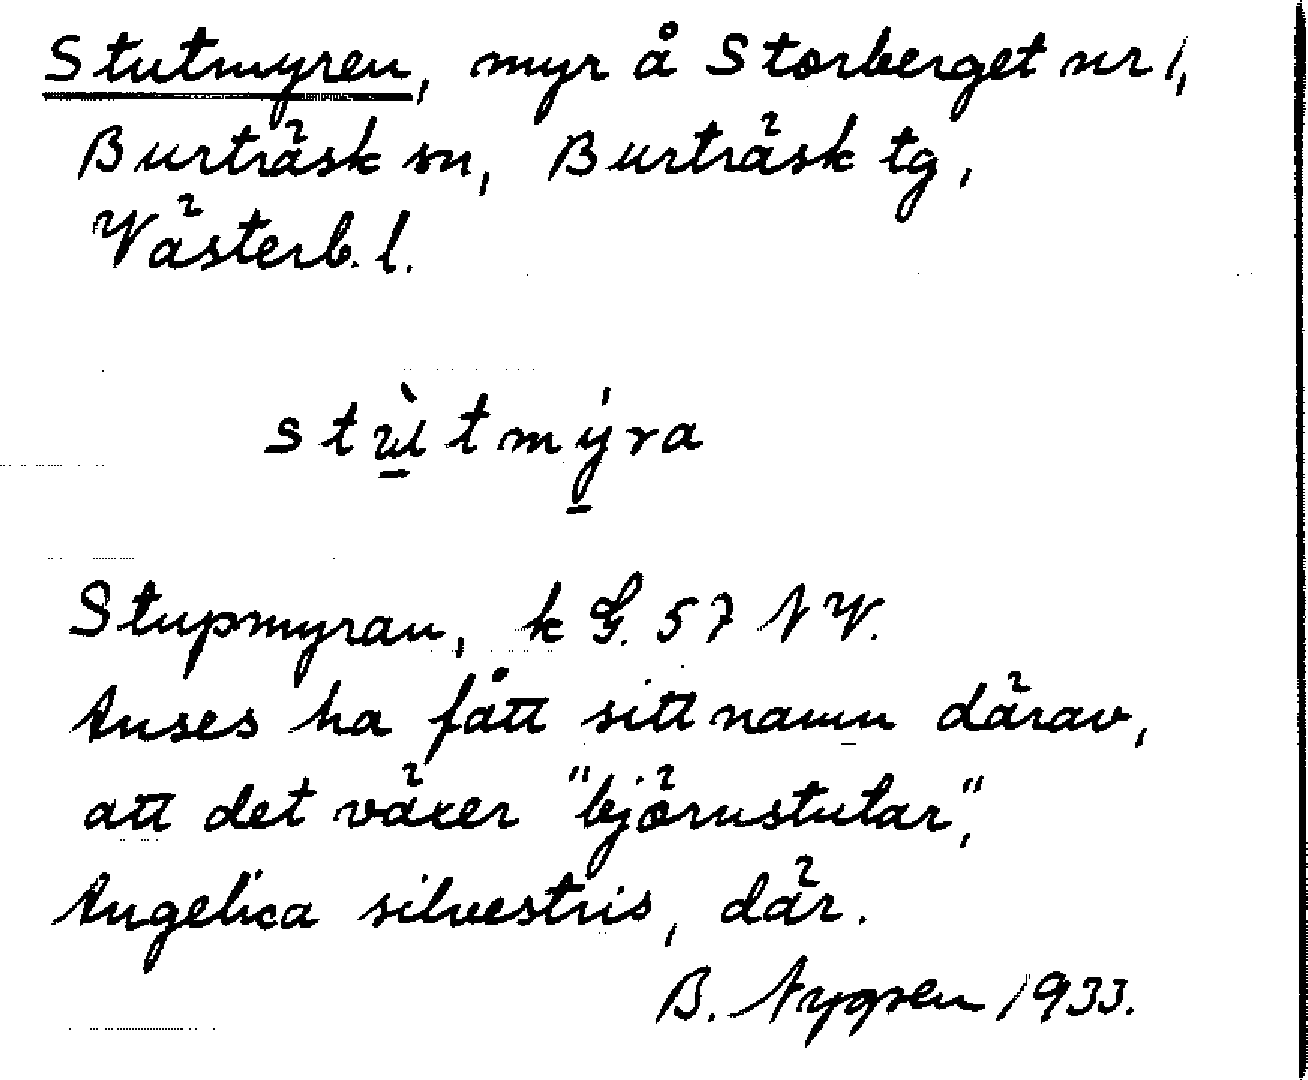 Stutmyren, myr å Storberget nr 1,
Burträsk sn, Burträsk tg,
Västerb. l.
stùtmýra
Stupmyran, k G. 57 NV.
Anses ha fått sitt namn därav,
att det växer "björnstutar",
Angelica silvestris, där.
B. Nygren 1933.